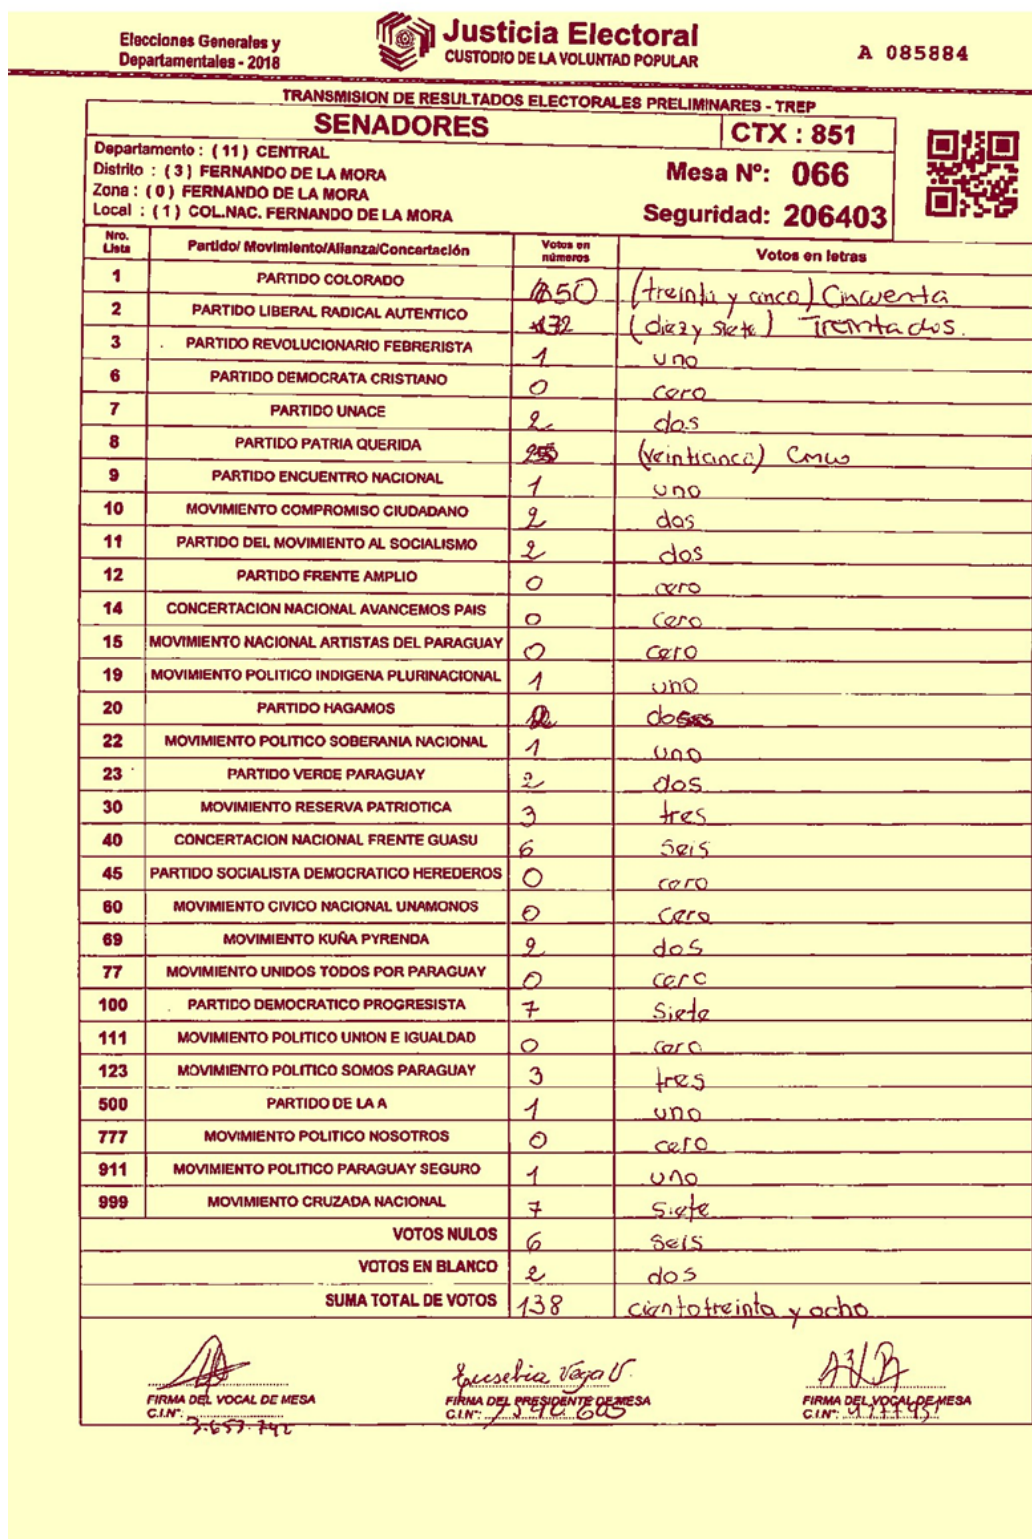 Elecciones Generales y
Departamentales - 2018
Justicia Electoral
CUSTODIO DE LA VOLUNTAD POPULAR
A 085884
TRANSMISION DE RESULTADOS ELECTORALES PRELIMINARES - TREP
SENADORES CTX : 851
Departamento : ( 11 ) CENTRAL
Distrito : ( 3 ) FERNANDO DE LA MORA
Zona : ( 0 ) FERNANDO DE LA MORA
Local : ( 1 ) COL.NAC. FERNANDO DE LA MORA
Mesa Nº: 066
Seguridad: 206403
Nro. Lista Partido/ Movimiento/Alianza/Concertación Votos en números Votos en letras
1 PARTIDO COLORADO 50 (treinta y cinco) Cincuenta
2 PARTIDO LIBERAL RADICAL AUTENTICO 32 (diez y siete) Treinta dos.
3 PARTIDO REVOLUCIONARIO FEBRERISTA 1 uno
6 PARTIDO DEMOCRATA CRISTIANO 0 cero
7 PARTIDO UNACE 2 dos
8 PARTIDO PATRIA QUERIDA (veinticinco) Cinco
9 PARTIDO ENCUENTRO NACIONAL 1 uno
10 MOVIMIENTO COMPROMISO CIUDADANO 2 dos
11 PARTIDO DEL MOVIMIENTO AL SOCIALISMO 2 dos
12 PARTIDO FRENTE AMPLIO 0 cero
14 CONCERTACION NACIONAL AVANCEMOS PAIS 0 Cero
15 MOVIMIENTO NACIONAL ARTISTAS DEL PARAGUAY 0 cero
19 MOVIMIENTO POLITICO INDIGENA PLURINACIONAL 1 uno
20 PARTIDO HAGAMOS 2 dos
22 MOVIMIENTO POLITICO SOBERANIA NACIONAL 1 uno
23 PARTIDO VERDE PARAGUAY 2 dos
30 MOVIMIENTO RESERVA PATRIOTICA 3 tres
40 CONCERTACION NACIONAL FRENTE GUASU 6 Seis
45 PARTIDO SOCIALISTA DEMOCRATICO HEREDEROS 0 cero
60 MOVIMIENTO CIVICO NACIONAL UNAMONOS 0 Cero
69 MOVIMIENTO KUÑA PYRENDA 2 dos
77 MOVIMIENTO UNIDOS TODOS POR PARAGUAY 0 cero
100 PARTIDO DEMOCRATICO PROGRESISTA 7 Siete
111 MOVIMIENTO POLITICO UNION E IGUALDAD 0 cero
123 MOVIMIENTO POLITICO SOMOS PARAGUAY 3 tres
500 PARTIDO DE LA A 1 uno
777 MOVIMIENTO POLITICO NOSOTROS 0 cero
911 MOVIMIENTO POLITICO PARAGUAY SEGURO 1 uno
999 MOVIMIENTO CRUZADA NACIONAL 7 Siete
VOTOS NULOS 6 Seis
VOTOS EN BLANCO 2 dos
SUMA TOTAL DE VOTOS 138 ciento treinta y ocho
Eusebia Vega V.
FIRMA DEL VOCAL DE MESA FIRMA DEL PRESIDENTE DE MESA FIRMA DEL VOCAL DE MESA
C.I.Nº: 3.653.742 C.I.Nº: C.I.Nº: